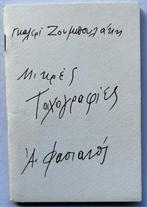 γκαλερί Ζουμπουλάκη
Μικρές
Ταχογραφίες
Α. Φασιανός